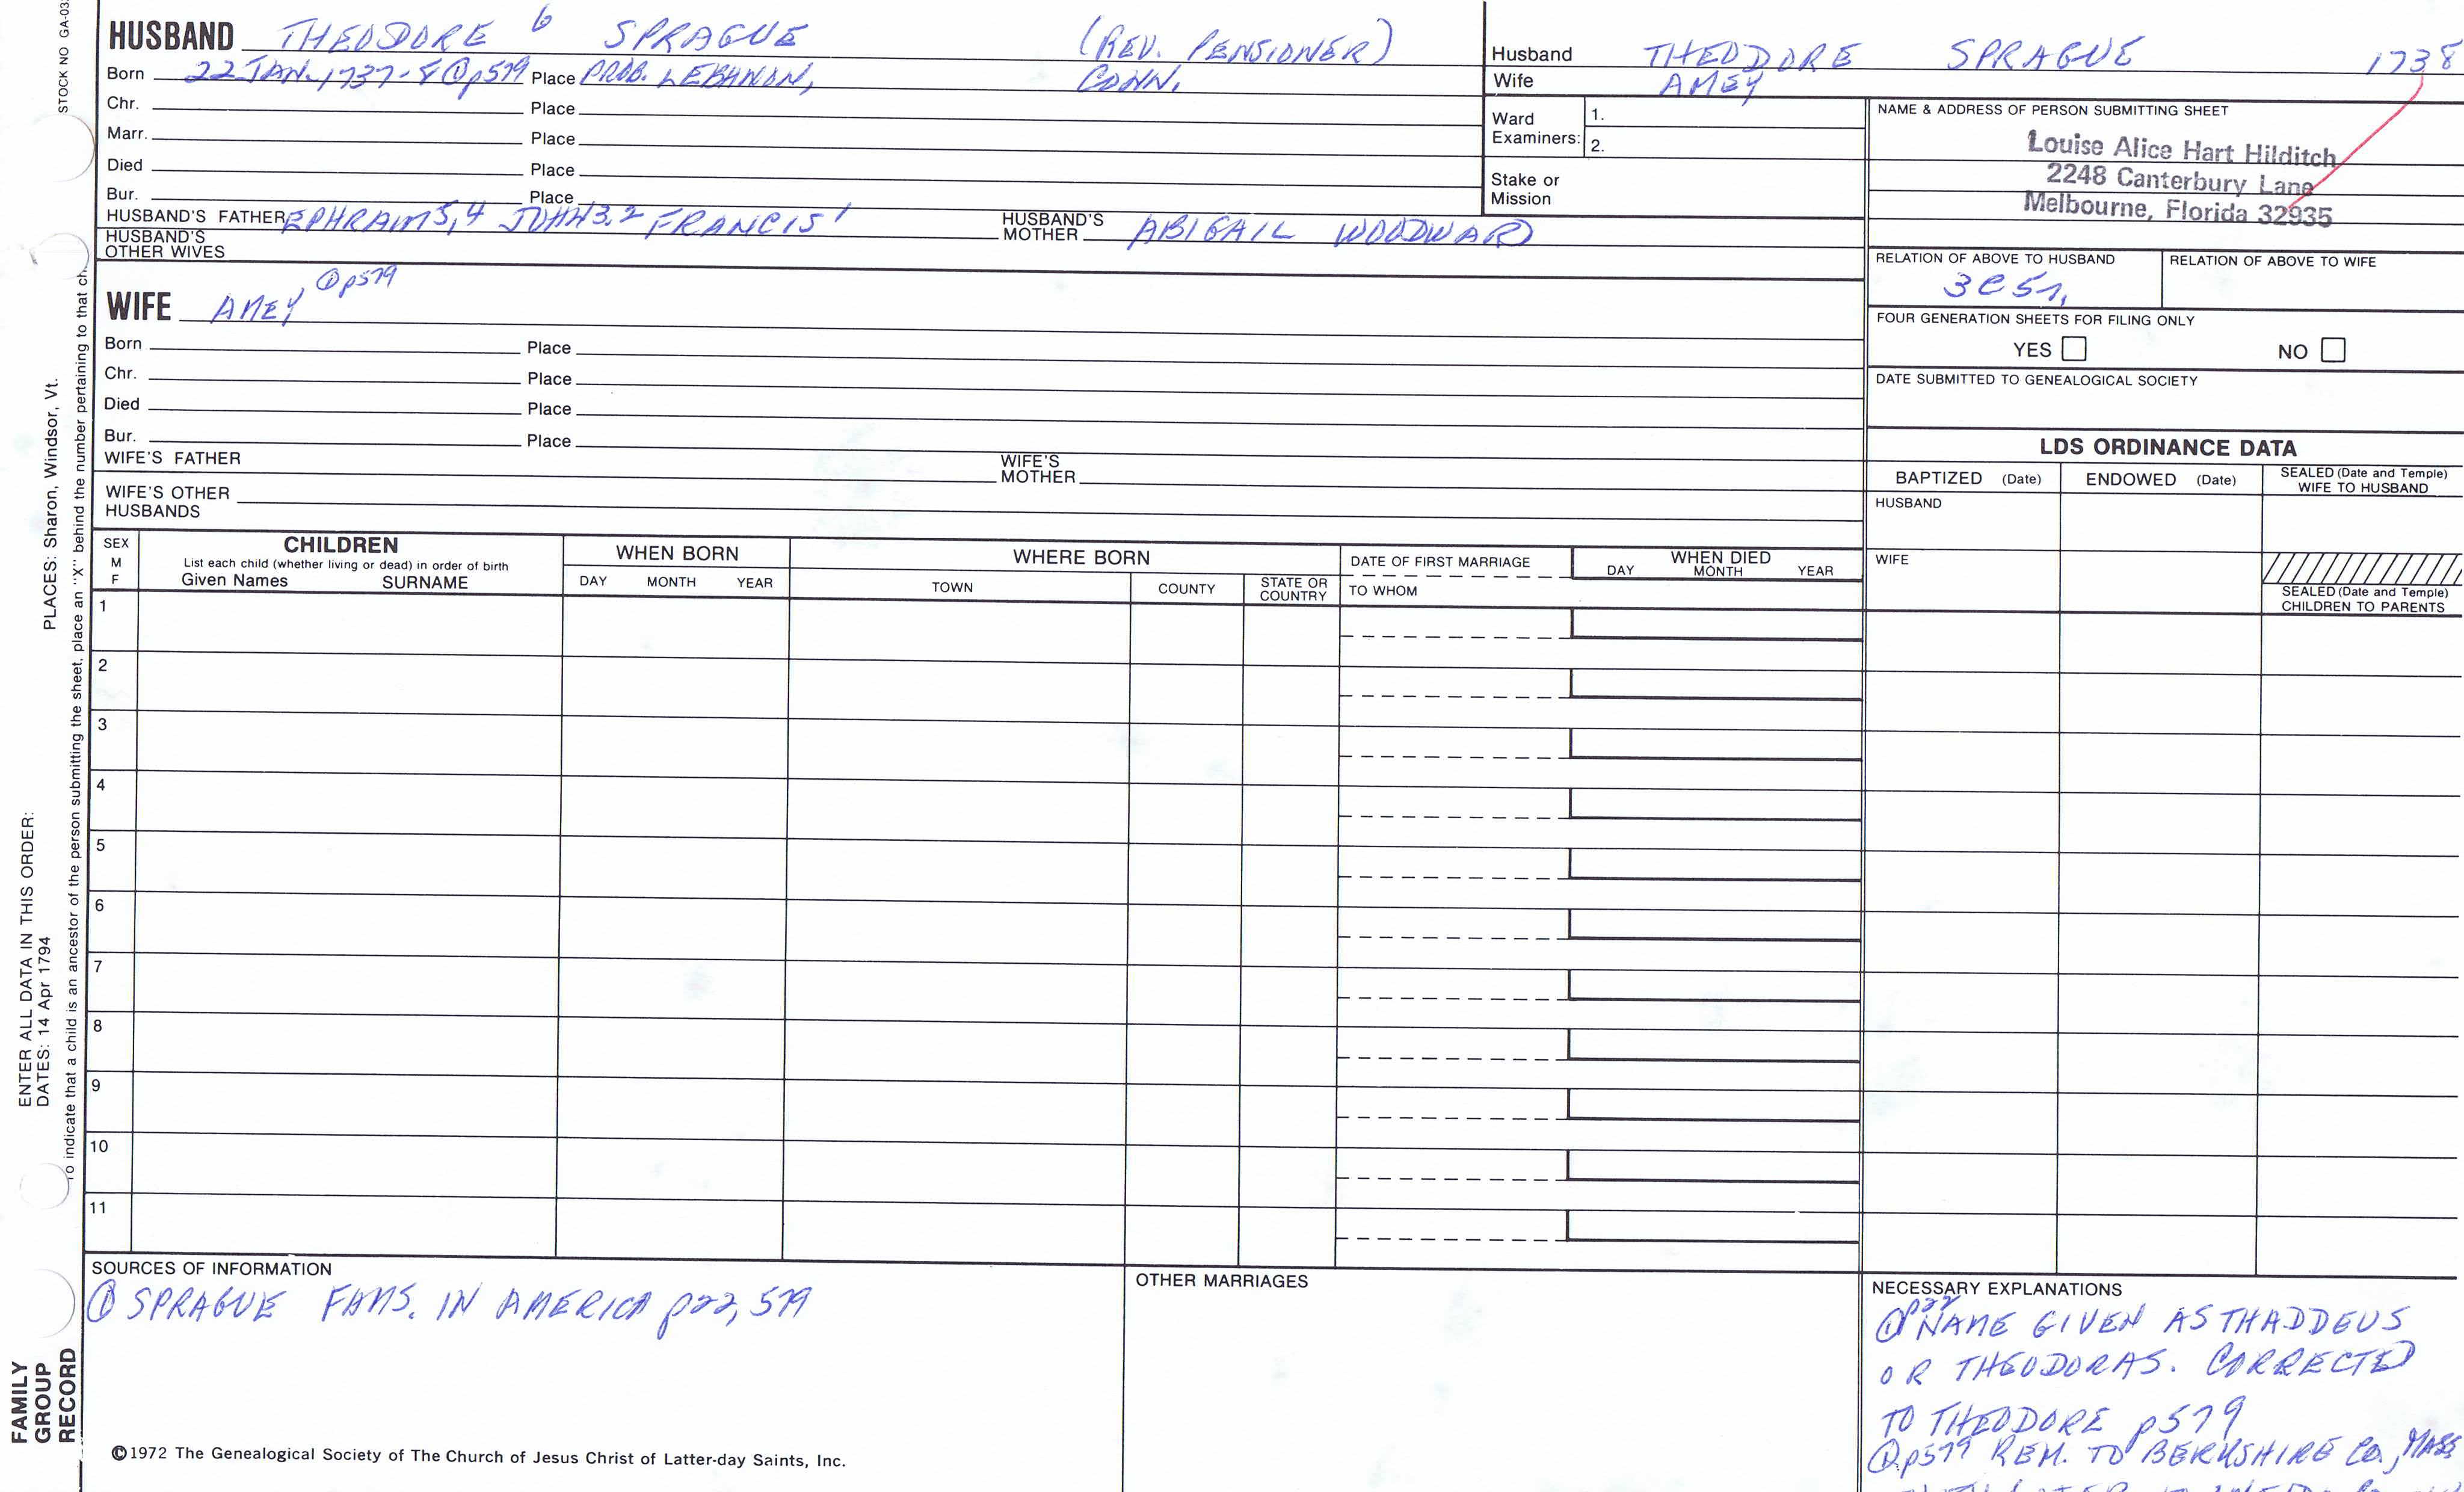 STOCK NO GA-03
HUSBAND THEODORE 6 SPRAGUE (REV. PENSIONER)
Born 22 JAN. 1737-8 ① p579 Place PROB. LEBANON, CONN.
Chr. Place
Marr. Place
Died Place
Bur. Place
HUSBAND'S FATHER EPHRAIM 5,4 JOHN 3,2 FRANCIS 1 HUSBAND'S MOTHER ABIGAIL WOODWARD
HUSBAND'S OTHER WIVES
WIFE AMEY ① p579
Born Place
Chr. Place
Died Place
Bur. Place
WIFE'S FATHER WIFE'S MOTHER
WIFE'S OTHER HUSBANDS
Husband THEODORE SPRAGUE 1738
Wife AMEY
Ward Examiners: 1.
2.
Stake or Mission
NAME & ADDRESS OF PERSON SUBMITTING SHEET
Louise Alice Hart Hilditch
2248 Canterbury Lane
Melbourne, Florida 32935
RELATION OF ABOVE TO HUSBAND RELATION OF ABOVE TO WIFE
3C5r.
FOUR GENERATION SHEETS FOR FILING ONLY
YES NO
DATE SUBMITTED TO GENEALOGICAL SOCIETY
LDS ORDINANCE DATA
BAPTIZED (Date) ENDOWED (Date) SEALED (Date and Temple) WIFE TO HUSBAND
HUSBAND
WIFE
SEALED (Date and Temple)
CHILDREN TO PARENTS
SEX M F
CHILDREN
List each child (whether living or dead) in order of birth
Given Names SURNAME
WHEN BORN
DAY MONTH YEAR
WHERE BORN
TOWN COUNTY STATE OR COUNTRY
DATE OF FIRST MARRIAGE
TO WHOM
WHEN DIED
DAY MONTH YEAR
1
2
3
4
5
6
7
8
9
10
11
SOURCES OF INFORMATION
① SPRAGUE FAMS. IN AMERICA p22, 579
OTHER MARRIAGES
NECESSARY EXPLANATIONS
① p22 NAME GIVEN AS THADDEUS
OR THEODORAS. CORRECTED
TO THEODORE p579
① p579 REM. TO BERKSHIRE Co., MASS
©1972 The Genealogical Society of The Church of Jesus Christ of Latter-day Saints, Inc.
PLACES: Sharon, Windsor, Vt.
ENTER ALL DATA IN THIS ORDER:
DATES: 14 Apr 1794
To indicate that a child is an ancestor of the person submitting the sheet, place an "X" behind the number pertaining to that ch
FAMILY
GROUP
RECORD